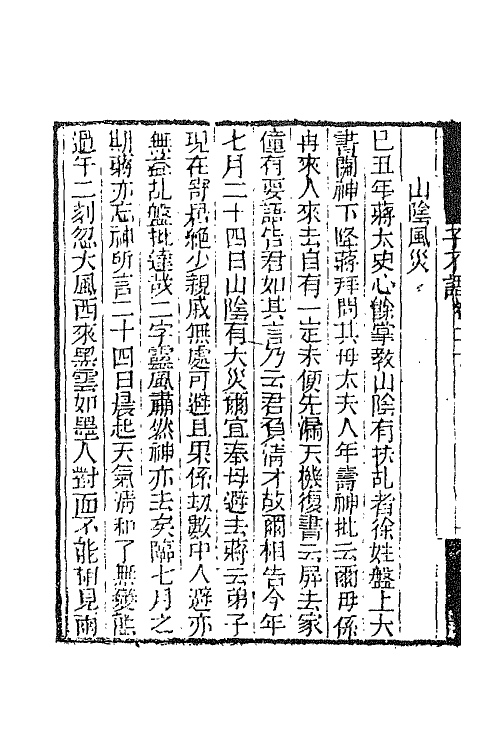 山陰風災
己丑年蔣太史心餘掌教山陰有扶乩者徐姓盤上大
書關神下降蔣拜問其母太夫人年壽神批云爾母係
再來人來去自有一定未便先漏天機復書云屏去家
僮有要語告君如其言乃云君負清才故爾相告今年
七月二十四日山陰有大災爾宜奉母避去蔣云弟子
現在寄居絕少親戚無處可避且果係劫數中人避亦
無益乩盤批達哉二字靈風肅然神亦去矣臨七月之
期蔣亦忘神所言二十四日晨起天氣清和了無變態
過午二刻忽大風西來黑雲如墨人對面不能相見兩
子不語卷二十